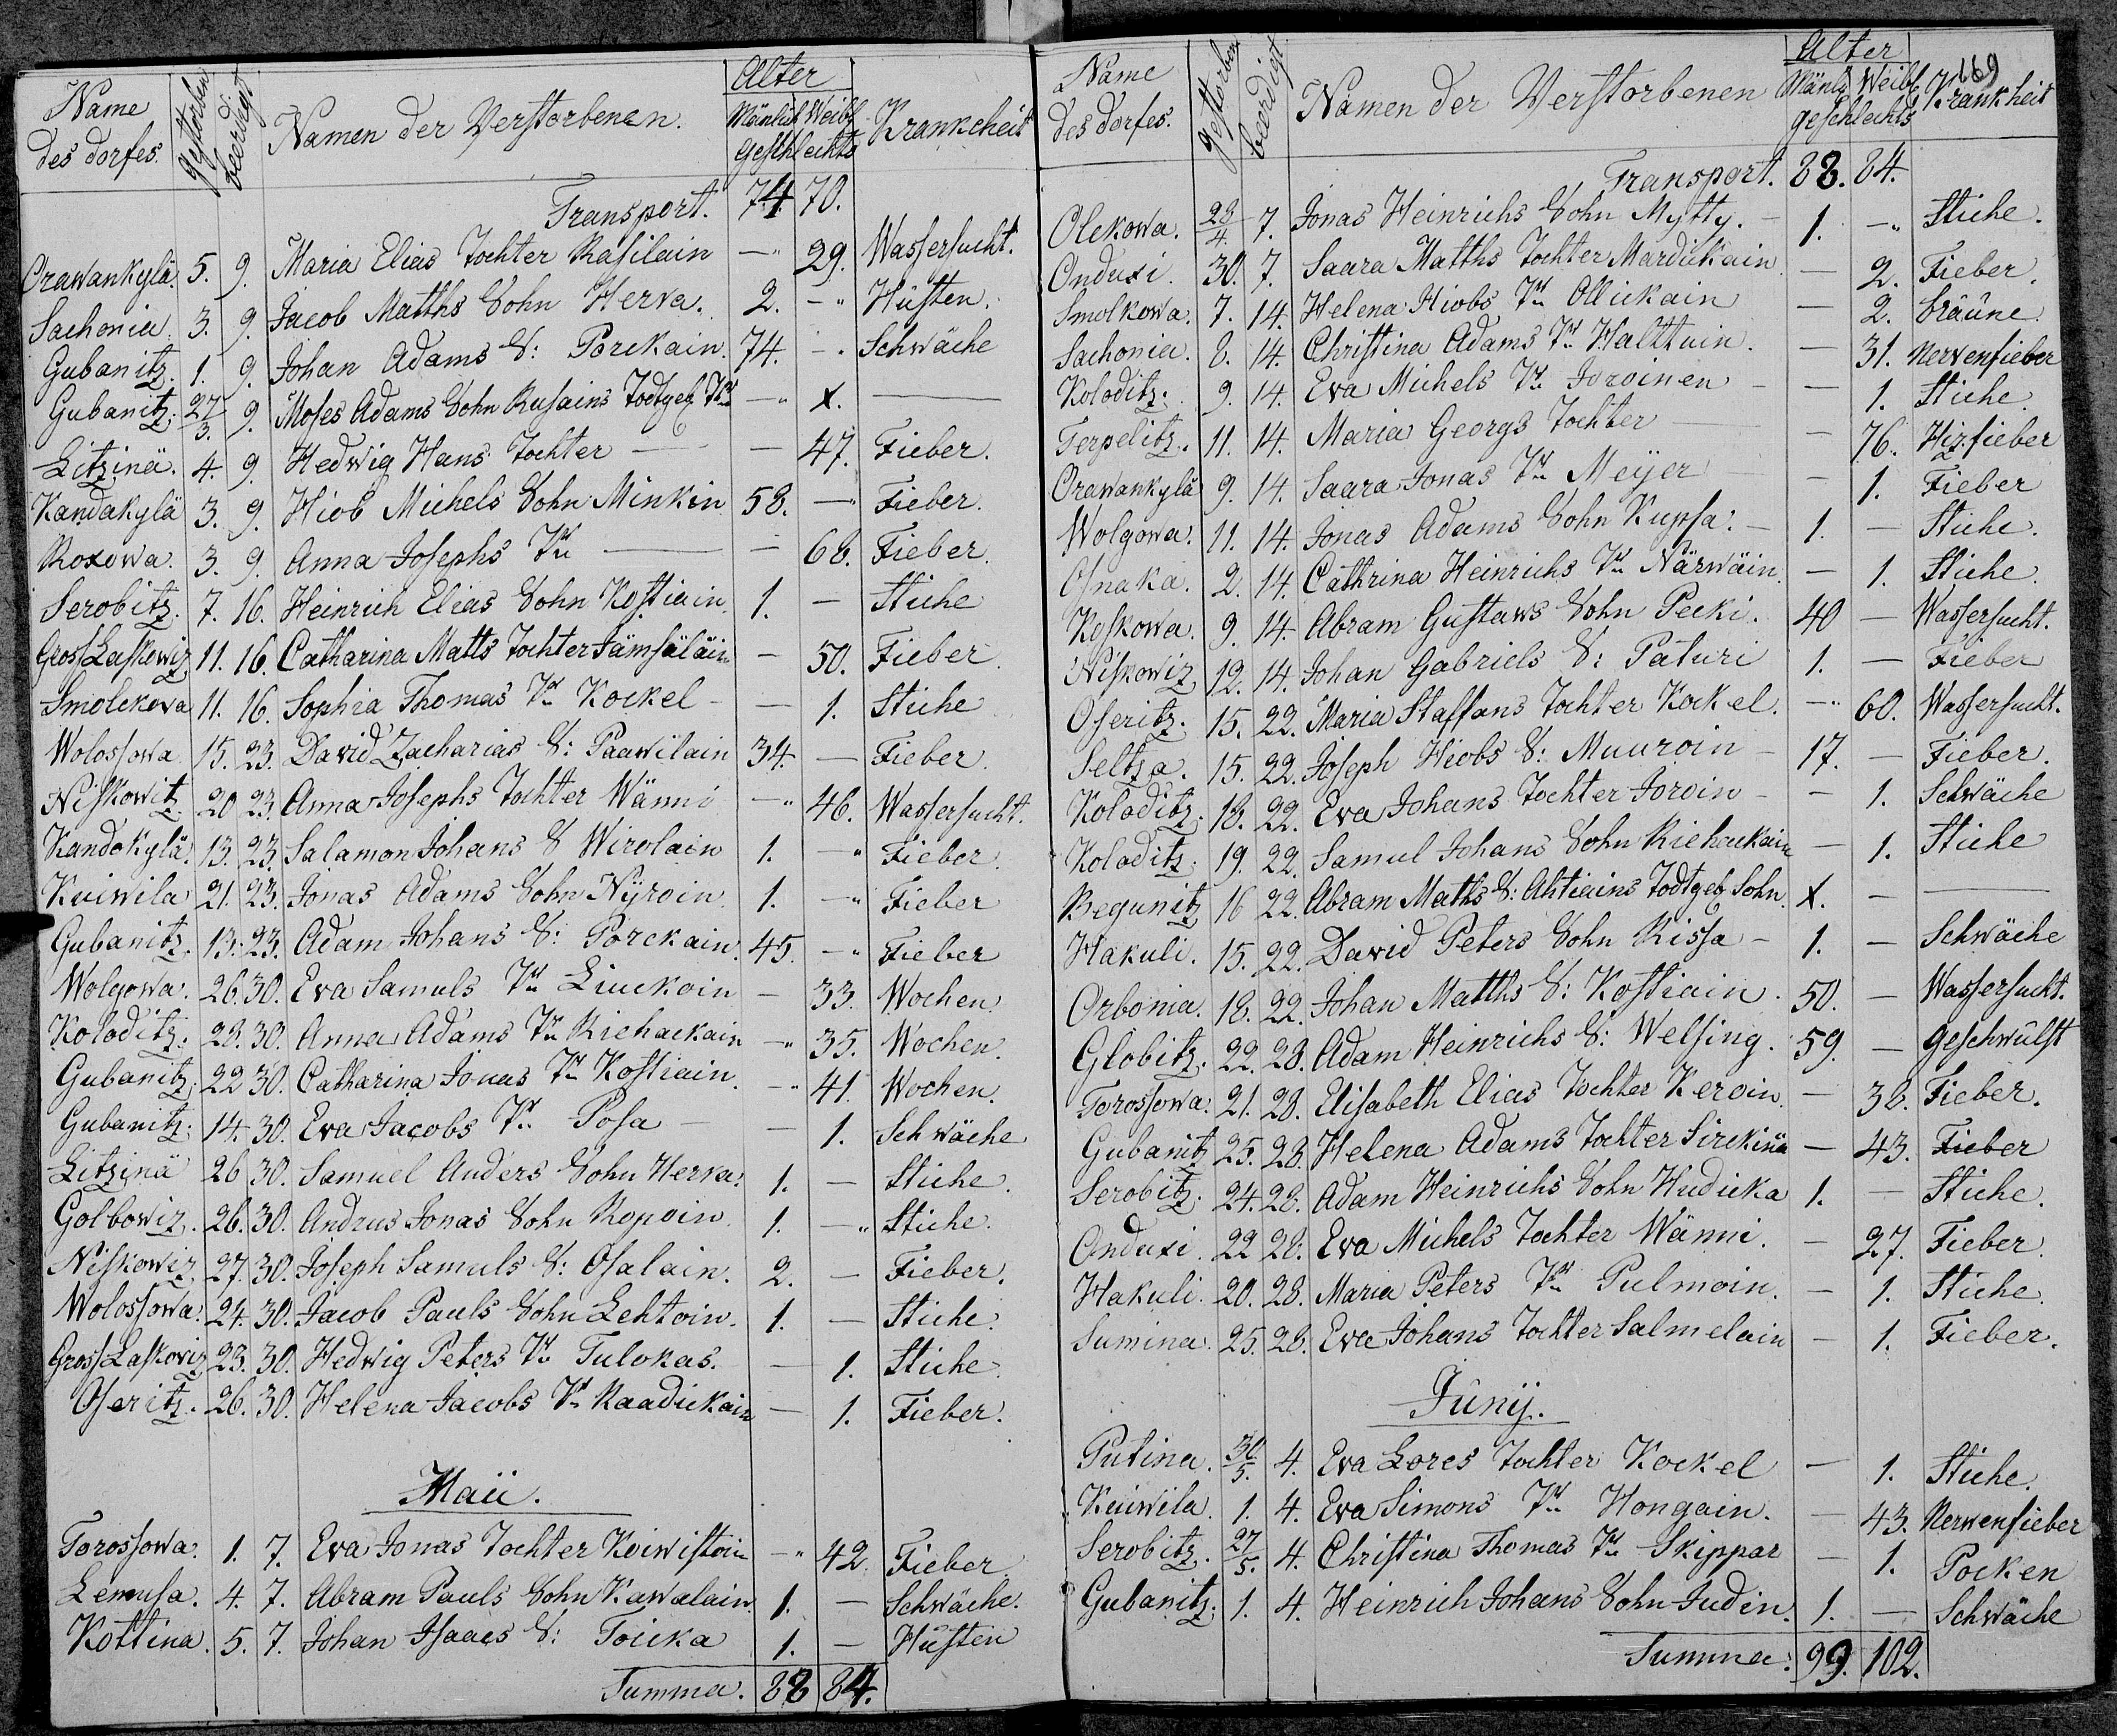 Name des dorfes. gestorben beerdigt Namen der Verstorbenen. Alter Mänlich Weibl Geschlechts Krankcheit
Transport. 74. 70.
Orawankylä. 5. 9. Maria Elias Tochter Rasilain — 29. Wassersucht.
Sachonia. 3. 9. Jacob Matths Sohn Herva. 2. — Hüsten.
Gubanitz. 1. 9. Johan Adams S: Porckain. 74. — Schwäche
Gubanitz. 27/3. 9. Moses Adams Sohn Rusains Todtgeb. Tr — x. —
Litzinä. 4. 9. Hedwig Hans Tochter — — 47. Fieber.
Kandakylä 3. 9. Hiob Michels Sohn Minkin 58. — Fieber.
Roxowa. 3. 9. Anna Josephs Tr — — 68. Fieber.
Serobitz. 7. 16. Heinrich Elias Sohn Kostiain. 1. — Stiche
Gross Laskowiz 11. 16. Catharina Matts Tochter Jämsäläin — 50. Fieber.
Smolekova 11. 16. Sophia Thomas Tr Kockel — — 1. Stiche
Wolossowa 15. 23. David Zacharias S: Paawilain 34. — Fieber.
Niskowitz 20 23. Anna Josephs Tochter Wänni — 46. Wassersucht.
Kandokylä. 13. 23. Salamon Johans S Wirolain 1. — Fieber.
Kuiwila 21. 23. Jonas Adams Sohn Nÿroin 1. — Fieber
Gubanitz. 13. 23. Adam Johans S: Porckain. 45. — Fieber
Wolgowa. 26. 30. Eva Samuls Tr Liuckoin — 33. Wochen
Koloditz. 28. 30. Anna Adams Tr Riehackain — 35. Wochen.
Gubanitz. 22 30. Catharina Jonas Tr Kostiain. — 41. Wochen.
Gubanitz. 14. 30. Eva Jacobs Tr Posa — — 1. Schwäche
Litzinä 26 30. Samuel Anders Sohn Herva. 1. — Stiche.
Golbowiz. 26. 30. Andrus Jonas Sohn Ropoin. 1. — Stiche.
Niskowiz 27. 30. Joseph Samuls S: Osalain. 2. — Fieber.
Wolossowa. 24. 30. Jacob Pauls Sohn Lehtoin. 1. — Stiche.
Gross Laskowiz 23. 30. Hedwig Peters Tr Tulokas. — 1. Stiche.
Oseritz. 26. 30. Helena Jacobs Tr Raadickain — 1. Fieber.
Maii.
Torossowa. 1. 7. Eva Jonas Tochter Koiwistoin — 42. Fieber.
Lemusa. 4. 7. Abram Pauls Sohn Kawalain. 1. — Schwäche.
Kottina. 5. 7. Johan Isaacs S: Toicka 1. — Hüsten
Summa. 88 84.
169
Name des dorfes. gestorben beerdigt Namen der Verstorbenen Alter Mänl. Weibl. geschlechts Krankheit
Transport. 88. 84.
Olekowa. 28/4. 7. Jonas Heinrichs Sohn Mytty. — 1. — Stiche.
Onduxi. 30. 7. Saara Matths Tochter Mardickain — 2. Fieber.
Smolkowa. 7. 14. Helena Hiobs Tr Ollickain — 2. bräune.
Sachonia. 8. 14. Christina Adams Tr Halttuin. — 31. Nervenfieber
Koloditz. 9. 14. Eva Michels Tr Joroinen — — 1. Stiche.
Terpelitz. 11. 14. Maria Georgs Tochter — — 76. Hizfieber
Orawankylä 9. 14. Saara Jonas Tr Meÿer — 1. Fieber
Wolgowa. 11. 14. Jonas Adams Sohn Kupsa. — 1. — Stiche.
Osnaka. 2. 14. Cathrina Heinrichs Tr Närwäin. — 1. Stiche.
Koskowa. 9. 14. Abram Gustaws Sohn Pecki. 40 — Wassersucht.
Niskowiz 12. 14. Johan Gabriels S: Paturi 1. — Fieber
Oseritz. 15. 22. Maria Staffans Tochter Kockel. — 60. Wassersucht.
Seltza. 15. 22. Joseph Hiobs S: Muuroin — 17. — Fieber.
Koloditz. 18. 22. Eva Johans Tochter Joroin — — 1. Schwäche
Koloditz. 19. 22. Samul Johans Sohn Riehackain — 1. Stiche
Begunitz 16 22. Abram Maths S: Ahtiains Todtgeb Sohn. x. — —
Hakuli. 15. 22. David Peters Sohn Rissa — 1. — Schwäche
Orbonia. 18. 22. Johan Matths S: Kostiain. 50. — Wassersucht.
Globitz. 22. 28. Adam Heinrichs S: Welsing. 59. — geschwülst
Torossowa. 21. 28. Elisabeth Elias Tochter Keroin. — 38. Fieber.
Gubanitz 25. 28. Helena Adams Tochter Sirckinä — 43. Fieber
Serobitz. 24. 28. Adam Heinrichs Sohn Hudicka 1. — Stiche.
Onduxi. 22 28. Eva Michels Tochter Wänni. — 27. Fieber.
Hakuli. 20. 28. Maria Peters Tr Pulmoin. — 1. Stiche.
Sumina. 25. 28. Eva Johans Tochter Salmelain — 1. Fieber.
Junÿ.
Putina. 30/5. 4. Eva Lores Tochter Kockel — 1. Stiche.
Kuiwila. 1. 4. Eva Simons Tr Hongain. — 43. Nerwenfieber
Serobitz. 27/5. 4. Christina Thomas Tr Skippar — 1. Pocken
Gubanitz. 1. 4. Heinrich Johans Sohn Judin. 1. — Schwäche
Summa. 99. 102.